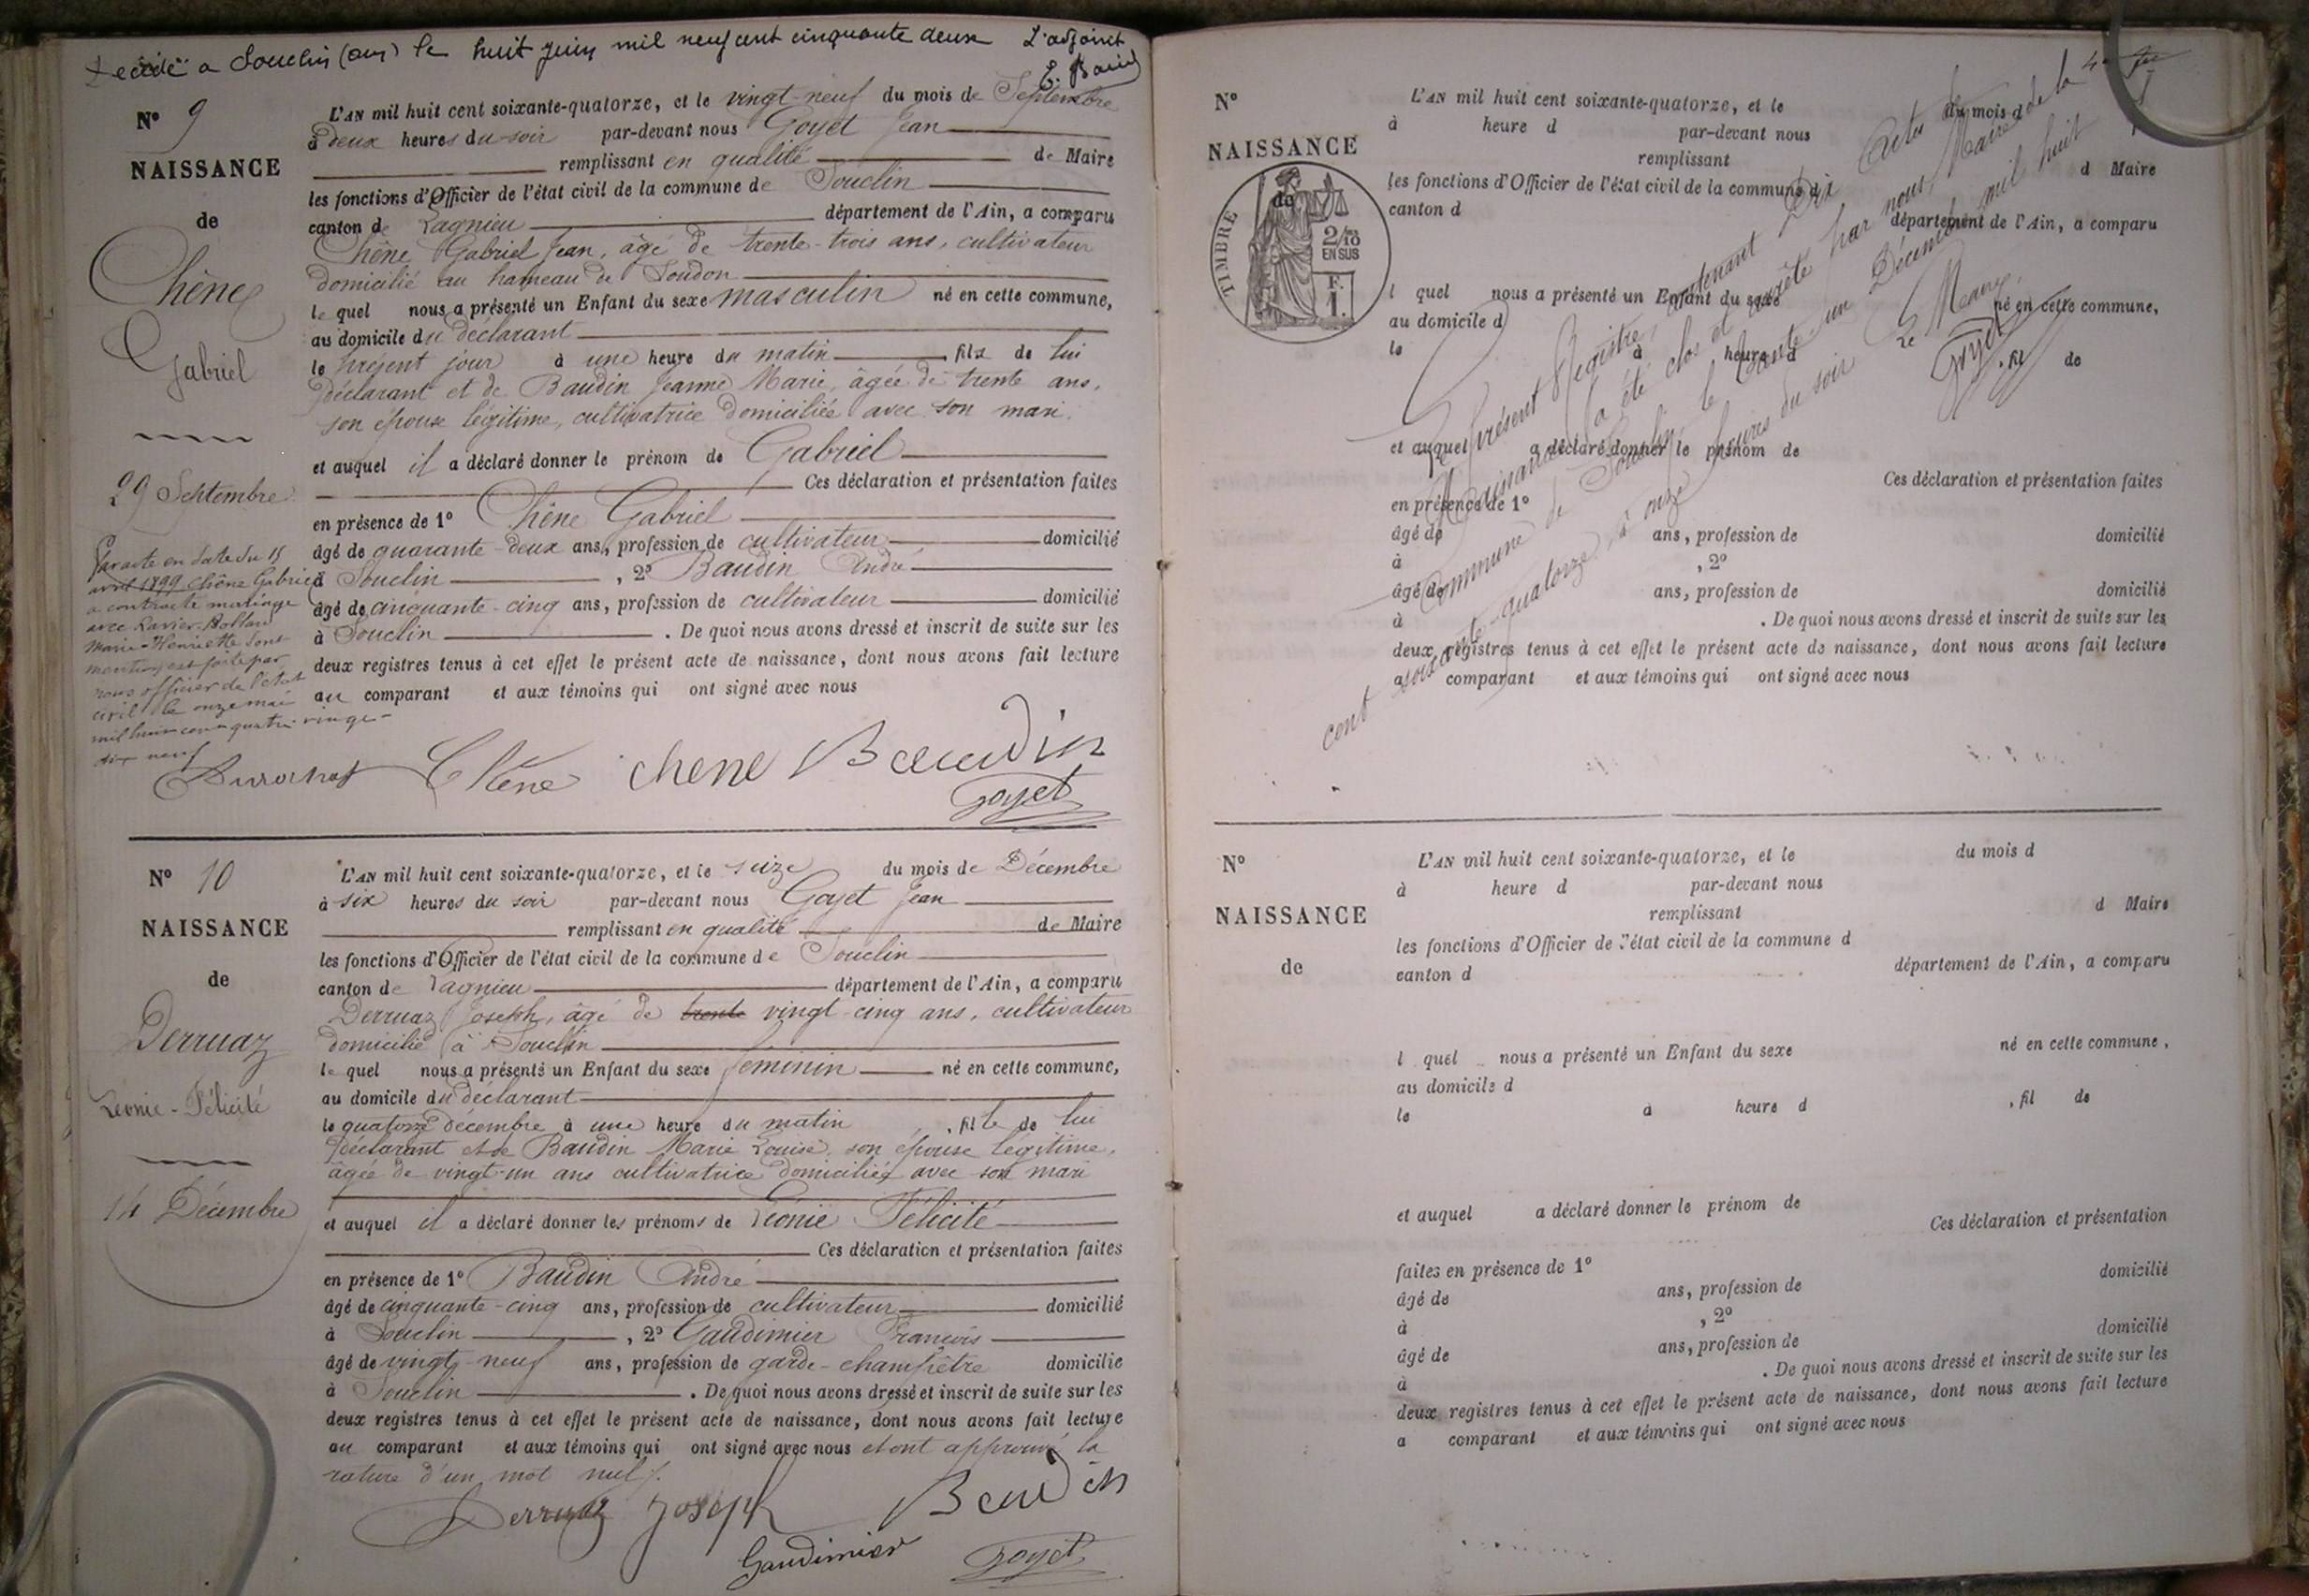 Décédé a Souclin (ain) le huit juin mil neuf cent cinquante deux L'adjoint
N° 9
NAISSANCE
de
Chêne
Gabriel
29 Septembre
Par acte en date du 15
avril 1899 Chêne Gabriel
a contracté mariage
avec Ravier-Rolland
Marie-Henriette dont
mention est faite par
nous officier de l'état
civil le onze mai
mil huit cent quatre vingt-
dix neuf
L'AN mil huit cent soixante-quatorze, et le vingt-neuf du mois de Septembre
à deux heures du soir par-devant nous Goyet Jean
remplissant en qualité de Maire
les fonctions d'Officier de l'état civil de la commune de Souclin
canton de Lagnieu département de l'Ain, a comparu
Chêne Gabriel Jean, âgé de trente-trois ans, cultivateur
domicilié au hameau de Soudon
le quel nous a présenté un Enfant du sexe masculin né en cette commune,
au domicile du déclarant
le présent jour à une heure du matin, fils de lui
déclarant et de Baudin Jeanne Marie, âgée de trente ans,
son épouse légitime, cultivatrice domiciliée avec son mari.
et auquel il a déclaré donner le prénom de Gabriel
Ces déclaration et présentation faites
en présence de 1° Chêne Gabriel
âgé de quarante-deux ans, profession de cultivateur domicilié
à Souclin, 2° Baudin André
âgé de cinquante-cinq ans, profession de cultivateur domicilié
à Souclin. De quoi nous avons dressé et inscrit de suite sur les
deux registres tenus à cet effet le présent acte de naissance, dont nous avons fait lecture
au comparant et aux témoins qui ont signé avec nous
Chêne chene Baudin
Goyet
N° 10
NAISSANCE
de
Derruaz
Léonie-Félicité
14 Décembre
L'AN mil huit cent soixante-quatorze, et le seize du mois de Décembre
à six heures du soir par-devant nous Goyet Jean
remplissant en qualité de Maire
les fonctions d'Officier de l'état civil de la commune de Souclin
canton de Lagnieu département de l'Ain, a comparu
Derruaz Joseph, âgé de trente vingt-cinq ans, cultivateur
domicilié à Souclin
le quel nous a présenté un Enfant du sexe féminin né en cette commune,
au domicile du déclarant
le quatorze décembre à une heure du matin, fille de lui
déclarant et de Baudin Marie Louise, son épouse légitime,
âgée de vingt-un ans cultivatrice domiciliée avec son mari
et auquel il a déclaré donner les prénoms de Léonie Félicité
Ces déclaration et présentation faites
en présence de 1° Baudin André
âgé de cinquante-cinq ans, profession de cultivateur domicilié
à Souclin, 2° Gaudimier François
âgé de vingt-neuf ans, profession de garde-champêtre domicilié
à Souclin. De quoi nous avons dressé et inscrit de suite sur les
deux registres tenus à cet effet le présent acte de naissance, dont nous avons fait lecture
au comparant et aux témoins qui ont signé avec nous et ont approuvé la
rature d'un mot nul.
Derruaz Joseph Baudin
Gaudimier Goyet
N°
NAISSANCE
de
TIMBRE
2/10
EN SUS
F.
1.
L'AN mil huit cent soixante-quatorze, et le du mois d
à heure d par-devant nous
remplissant d Maire
les fonctions d'Officier de l'état civil de la commune d
canton d département de l'Ain, a comparu
l quel nous a présenté un Enfant du sexe né en cette commune,
au domicile d
le à heure d , fil de
et auquel a déclaré donner le prénom de
Ces déclaration et présentation faites
en présence de 1°
âgé de ans, profession de domicilié
à , 2°
âgé de ans, profession de domicilié
à . De quoi nous avons dressé et inscrit de suite sur les
deux registres tenus à cet effet le présent acte de naissance, dont nous avons fait lecture
a comparant et aux témoins qui ont signé avec nous
Le présent Registre, contenant Dix Actes de
Naissance a été clos et arrêté par nous, Maire de la
Commune de Souclin, le trente-un Décembre mil huit
cent soixante-quatorze, à onze heures du soir
Le Maire,
Goyet
N°
NAISSANCE
de
L'AN mil huit cent soixante-quatorze, et le du mois d
à heure d par-devant nous
remplissant d Maire
les fonctions d'Officier de l'état civil de la commune d
canton d département de l'Ain, a comparu
l quel nous a présenté un Enfant du sexe né en cette commune,
au domicile d
le à heure d , fil de
et auquel a déclaré donner le prénom de
Ces déclaration et présentation
faites en présence de 1°
âgé de ans, profession de domicilié
à , 2°
âgé de ans, profession de domicilié
à . De quoi nous avons dressé et inscrit de suite sur les
deux registres tenus à cet effet le présent acte de naissance, dont nous avons fait lecture
a comparant et aux témoins qui ont signé avec nous